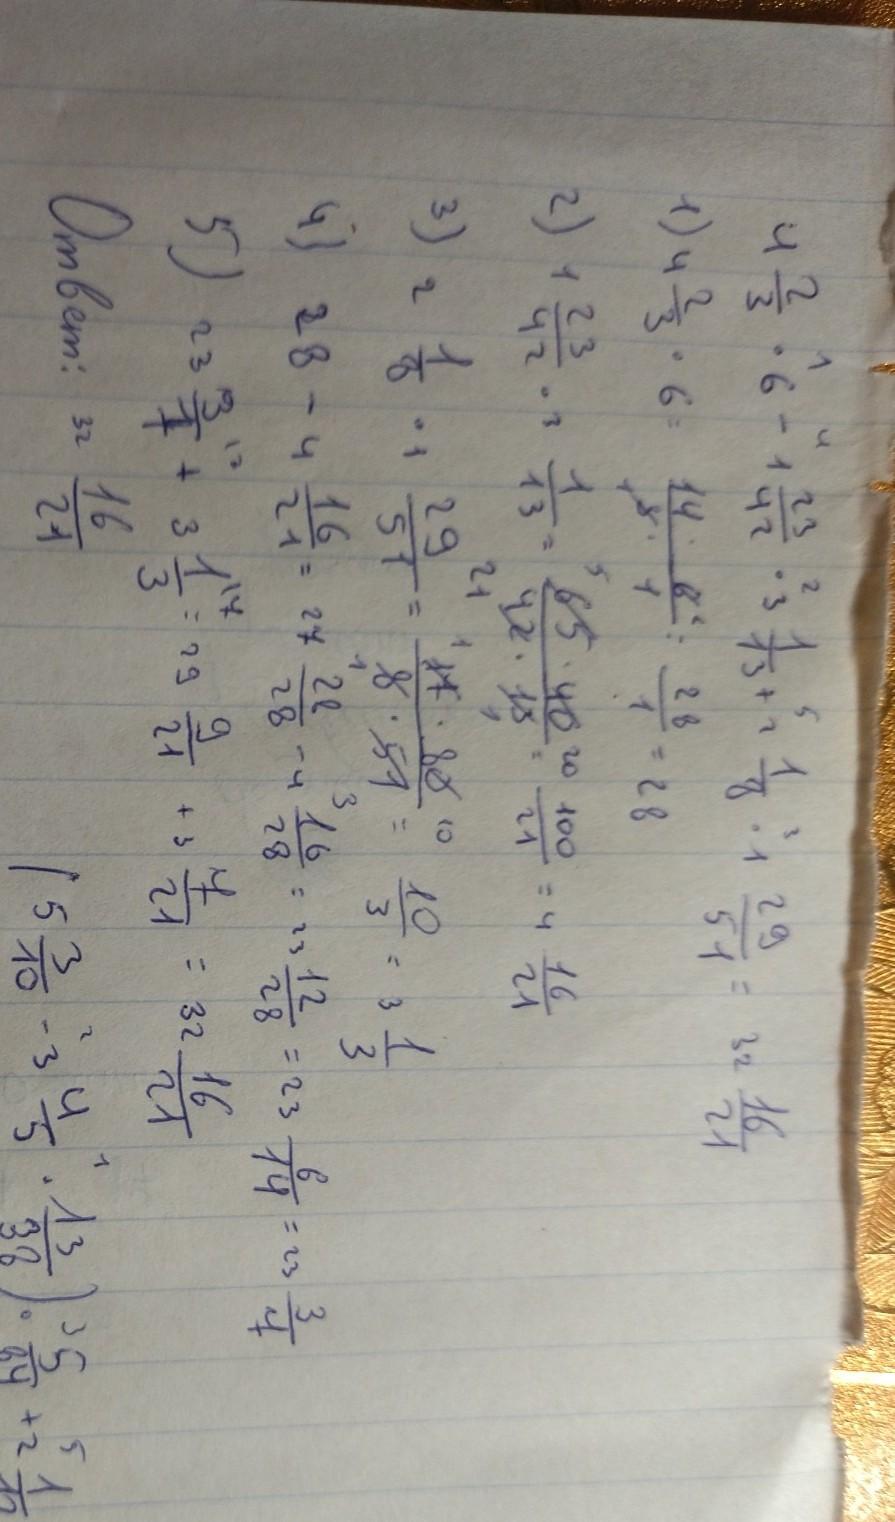 4 2/3 · 6 - 1 23/42 · 3 1/13 + 2 1/8 · 1 29/51 = 32 16/21
1) 4 2/3 · 6 = 14 · 6/3 · 1 = 28/1 = 28
2) 1 23/42 · 3 1/13 = 65 · 40/42 · 13 = 100/21 = 4 16/21
3) 2 1/8 · 1 29/51 = 17 · 80/8 · 51 = 10/3 = 3 1/3
4) 28 - 4 16/21 = 27 28/28 - 4 16/28 = 23 12/28 = 23 6/14 = 23 3/7
5) 23 3/7 + 3 1/3 = 29 9/21 + 3 7/21 = 32 16/21
Ответ: 32 16/21
(5 3/10 - 3 4/5 · 13/38) · 5/64 + 2 1/12